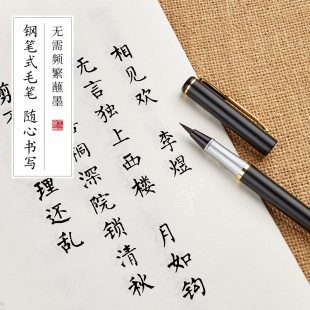 无需频繁蘸墨
钢笔式毛笔 随心书写
相见欢 李煜
无言独上西楼 月如钩
桐深院锁清秋
剪 理还乱